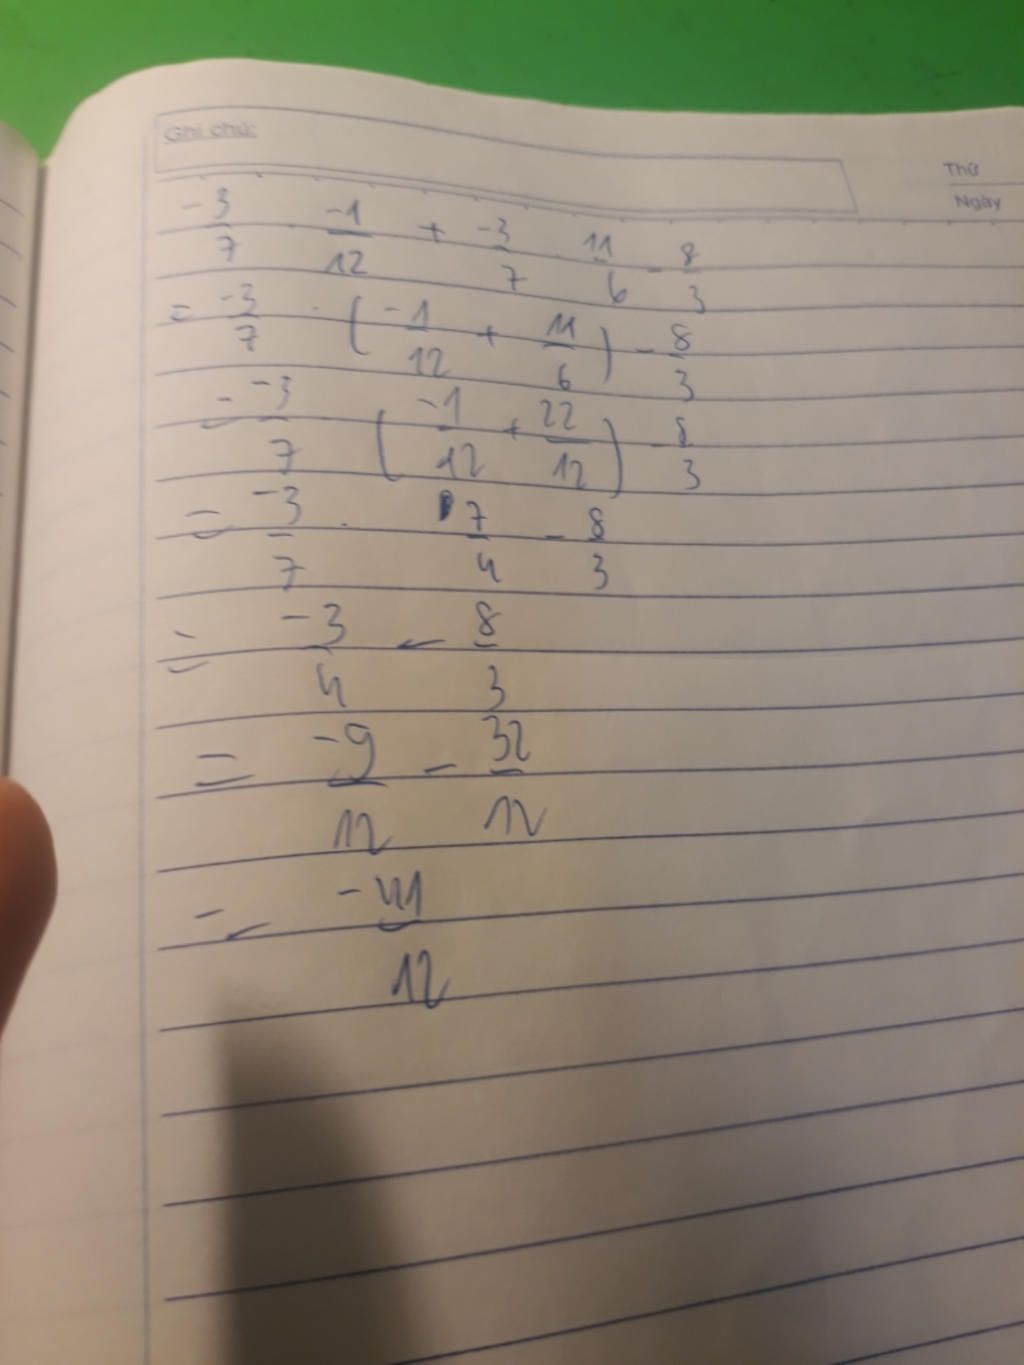 Ghi chú:
Thứ
Ngày
-3/7 · -1/12 + -3/7 · 11/6 - 8/3
= -3/7 · (-1/12 + 11/6) - 8/3
= -3/7 (-1/12 + 22/12) - 8/3
= -3/7 · 7/4 - 8/3
= -3/4 - 8/3
= -9/12 - 32/12
= -41/12